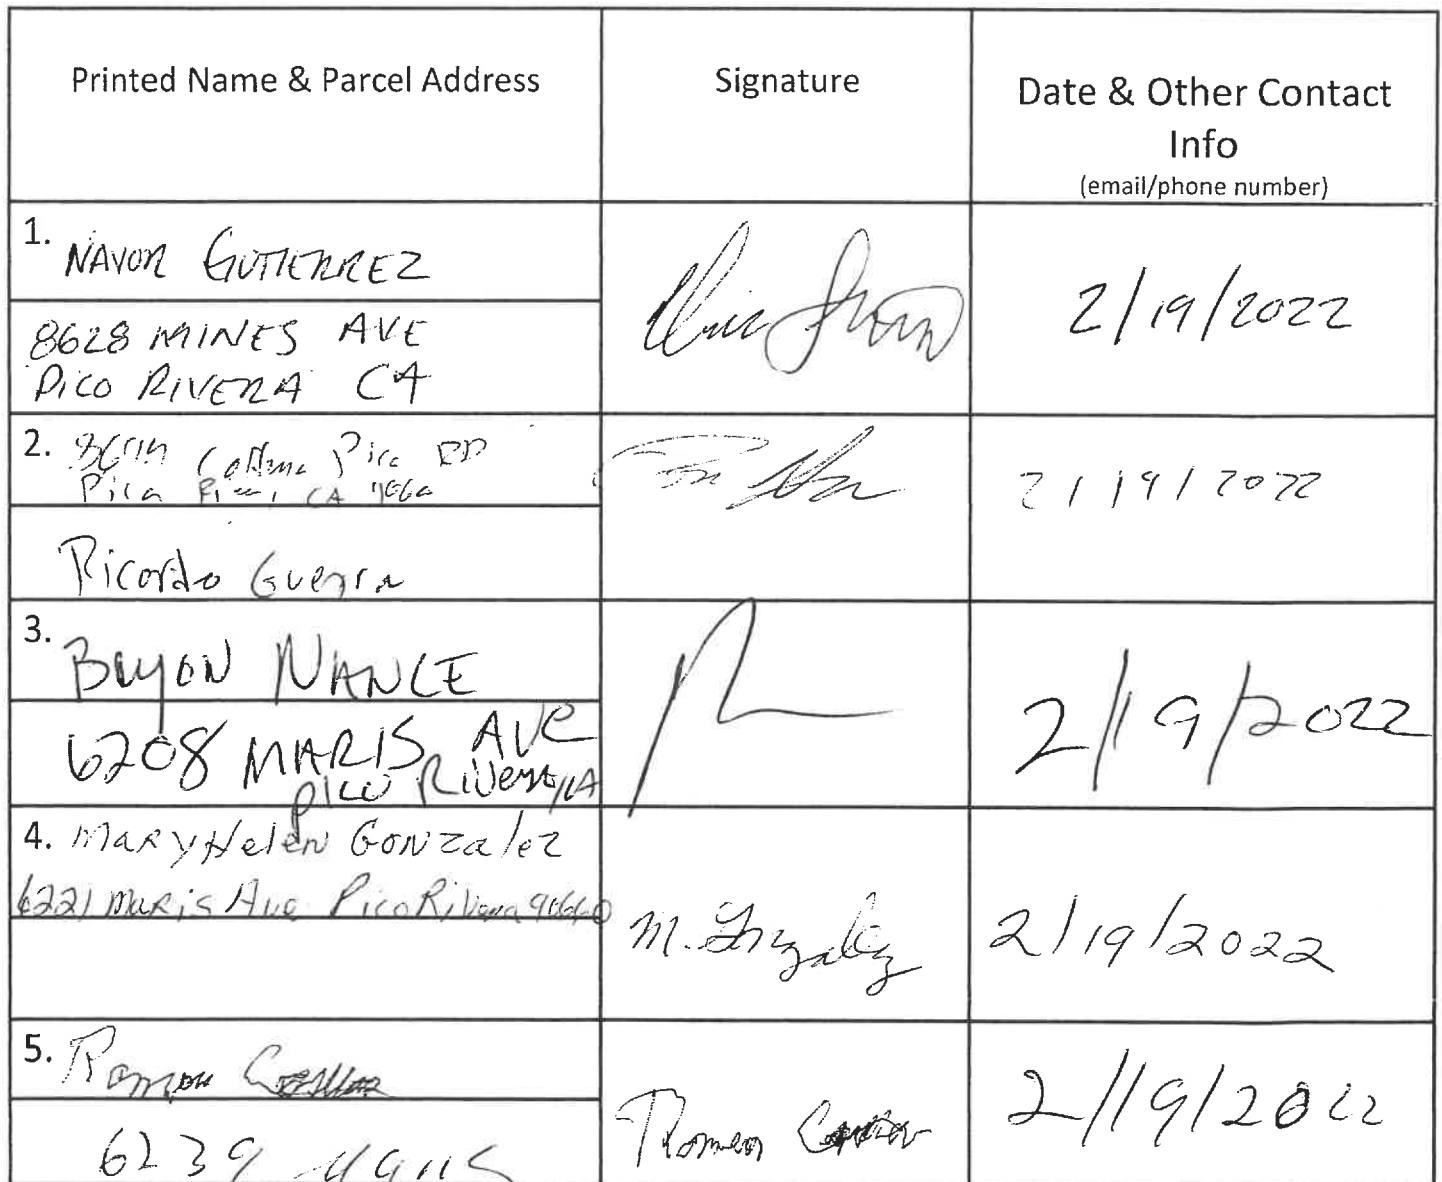 Printed Name & Parcel Address
Signature
Date & Other Contact
Info
(email/phone number)
1. NAVOR GUTIERREZ
8628 MINES AVE
PICO RIVERA CA
2/19/2022
2. Pico RD
Pico CA
2/19/2022
Ricardo Guerra
3. BRYON NANCE
6208 MARIS AVE
PICO RIVERA, CA
2/19/2022
4. MaryHelen Gonzalez
6221 Maris Ave Pico Rivera 90660
M. Gonzalez
2/19/2022
5. Ramon
6239 Maris
Ramon
2/19/2022